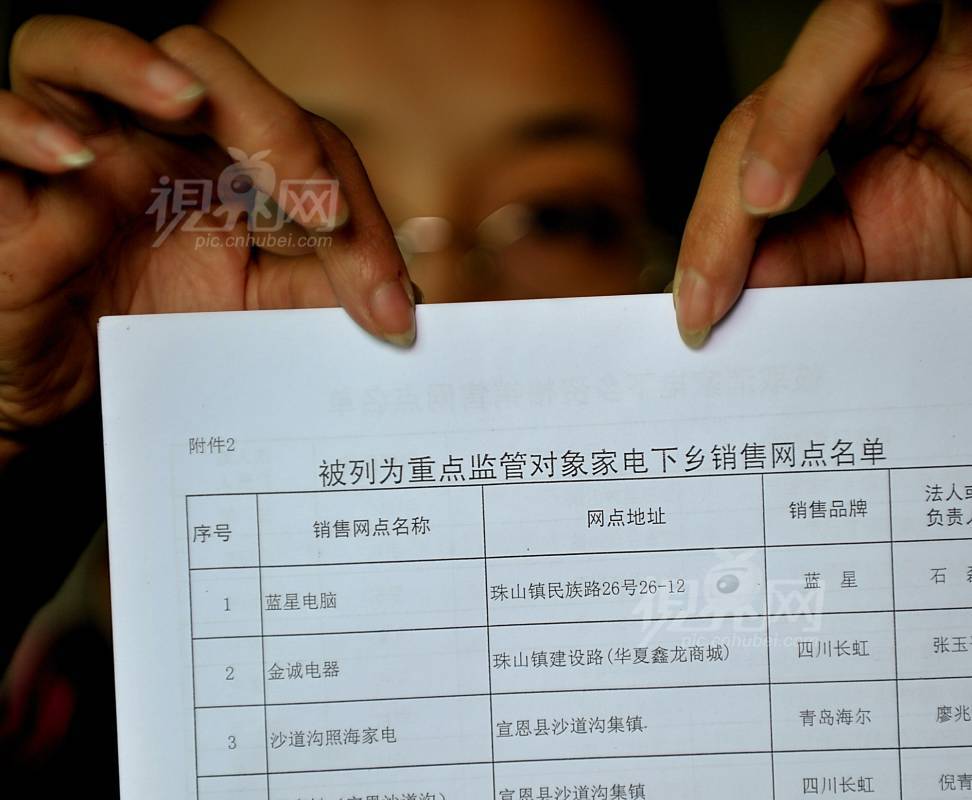 視界网
pic.cnhubei.com
附件2
被列为重点监管对象家电下乡销售网点名单
序号 销售网点名称 网点地址 销售品牌 法人或
负责人
1 蓝星电脑 珠山镇民族路26号26-12 蓝 星 石
視界网
pic.cnhubei.com
2 金诚电器 珠山镇建设路(华夏鑫龙商城) 四川长虹 张玉
3 沙道沟照海家电 宣恩县沙道沟集镇. 青岛海尔 廖兆
宣恩县沙道沟集镇 四川长虹 倪青